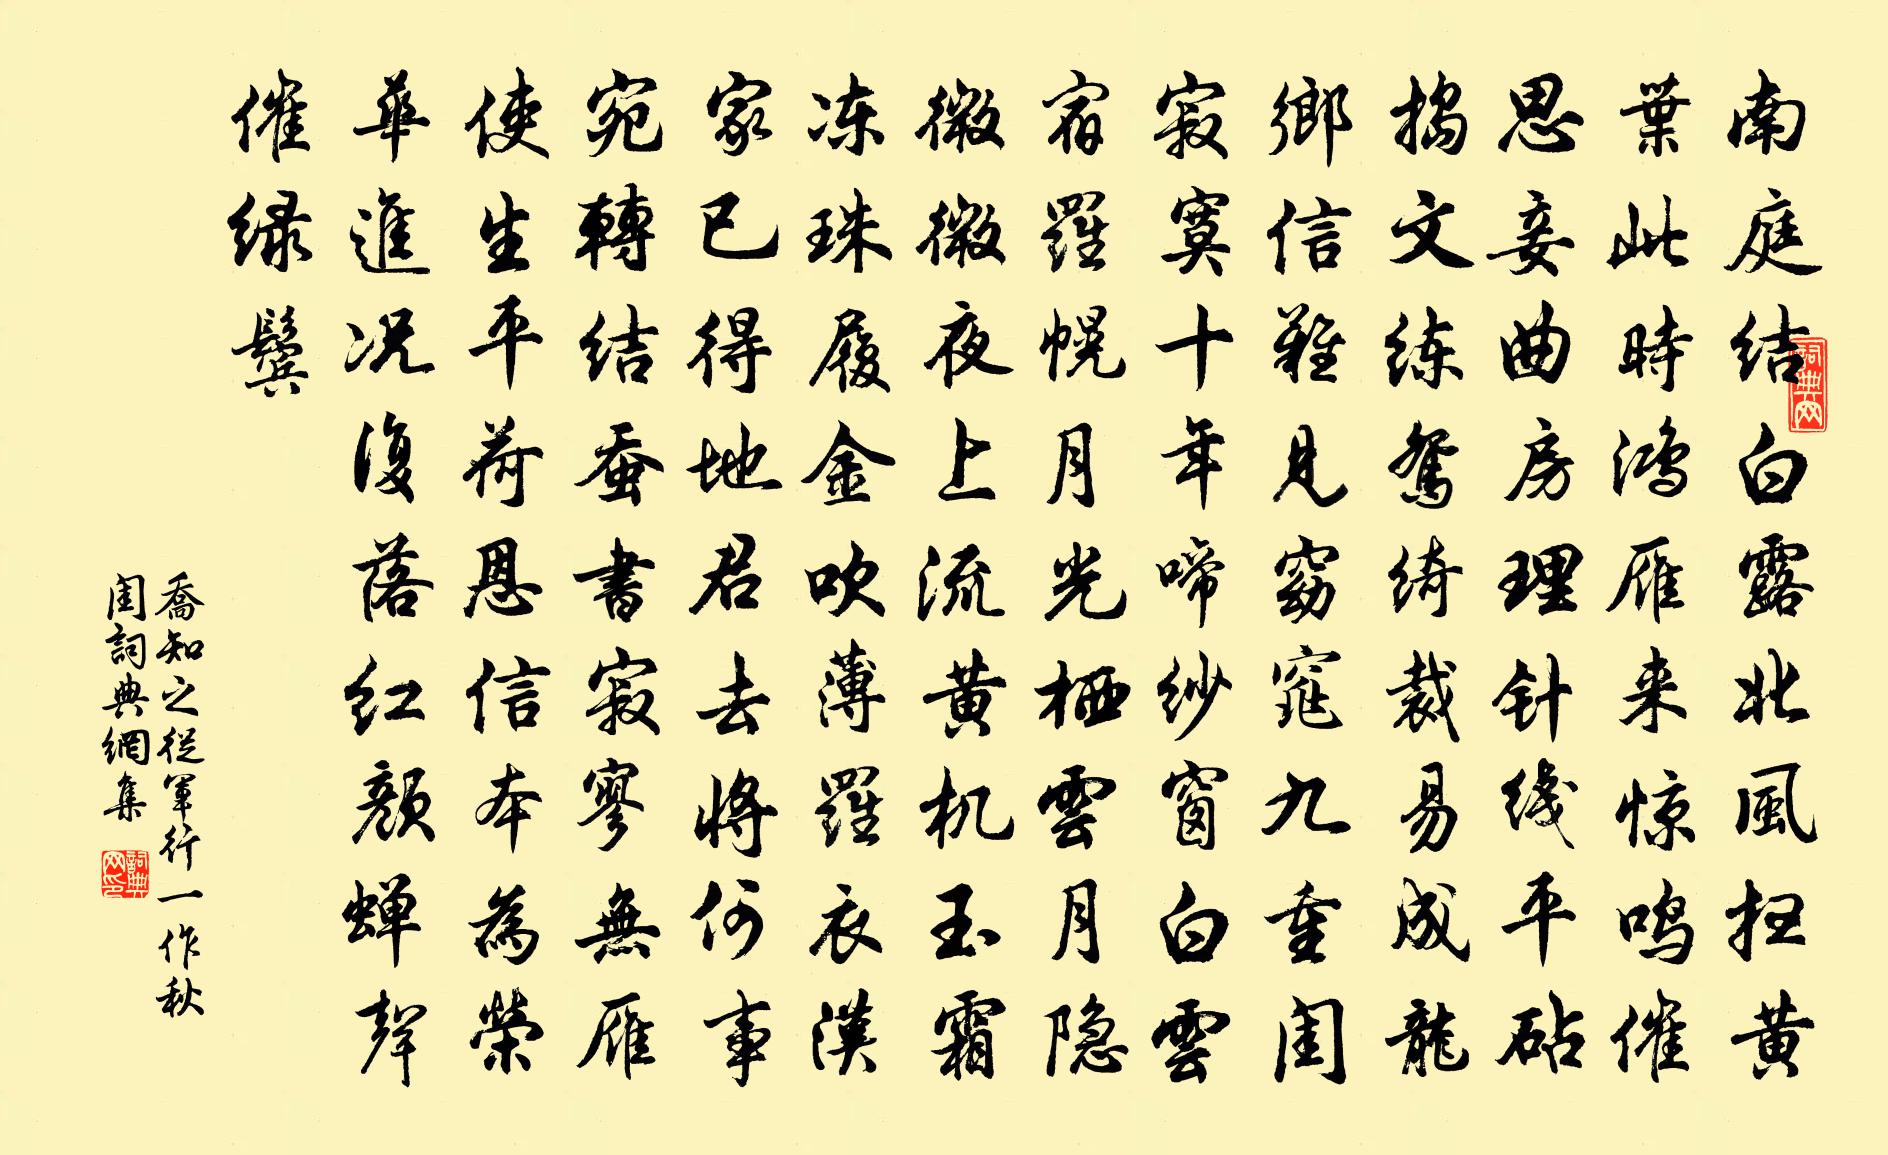 南庭结白露北風扫黄
葉此時鴻雁来惊鸣催
思妾曲房理针线平砧
捣文练鸳绮裁易成龍
鄉信難見窈窕九重闺
寂寞十年啼纱窗白雲
宿羅幌月光栖雲月隐
微微夜上流黄机玉霜
冻珠履金吹薄羅衣漢
家已得地君去將何事
宛轉结蚕書寂寥無雁
使生平荷恩信本為榮
華進况復落红颜蝉聲
催绿鬓
喬知之從軍行一作秋
闺詞典網集
詞典网
詞典网印